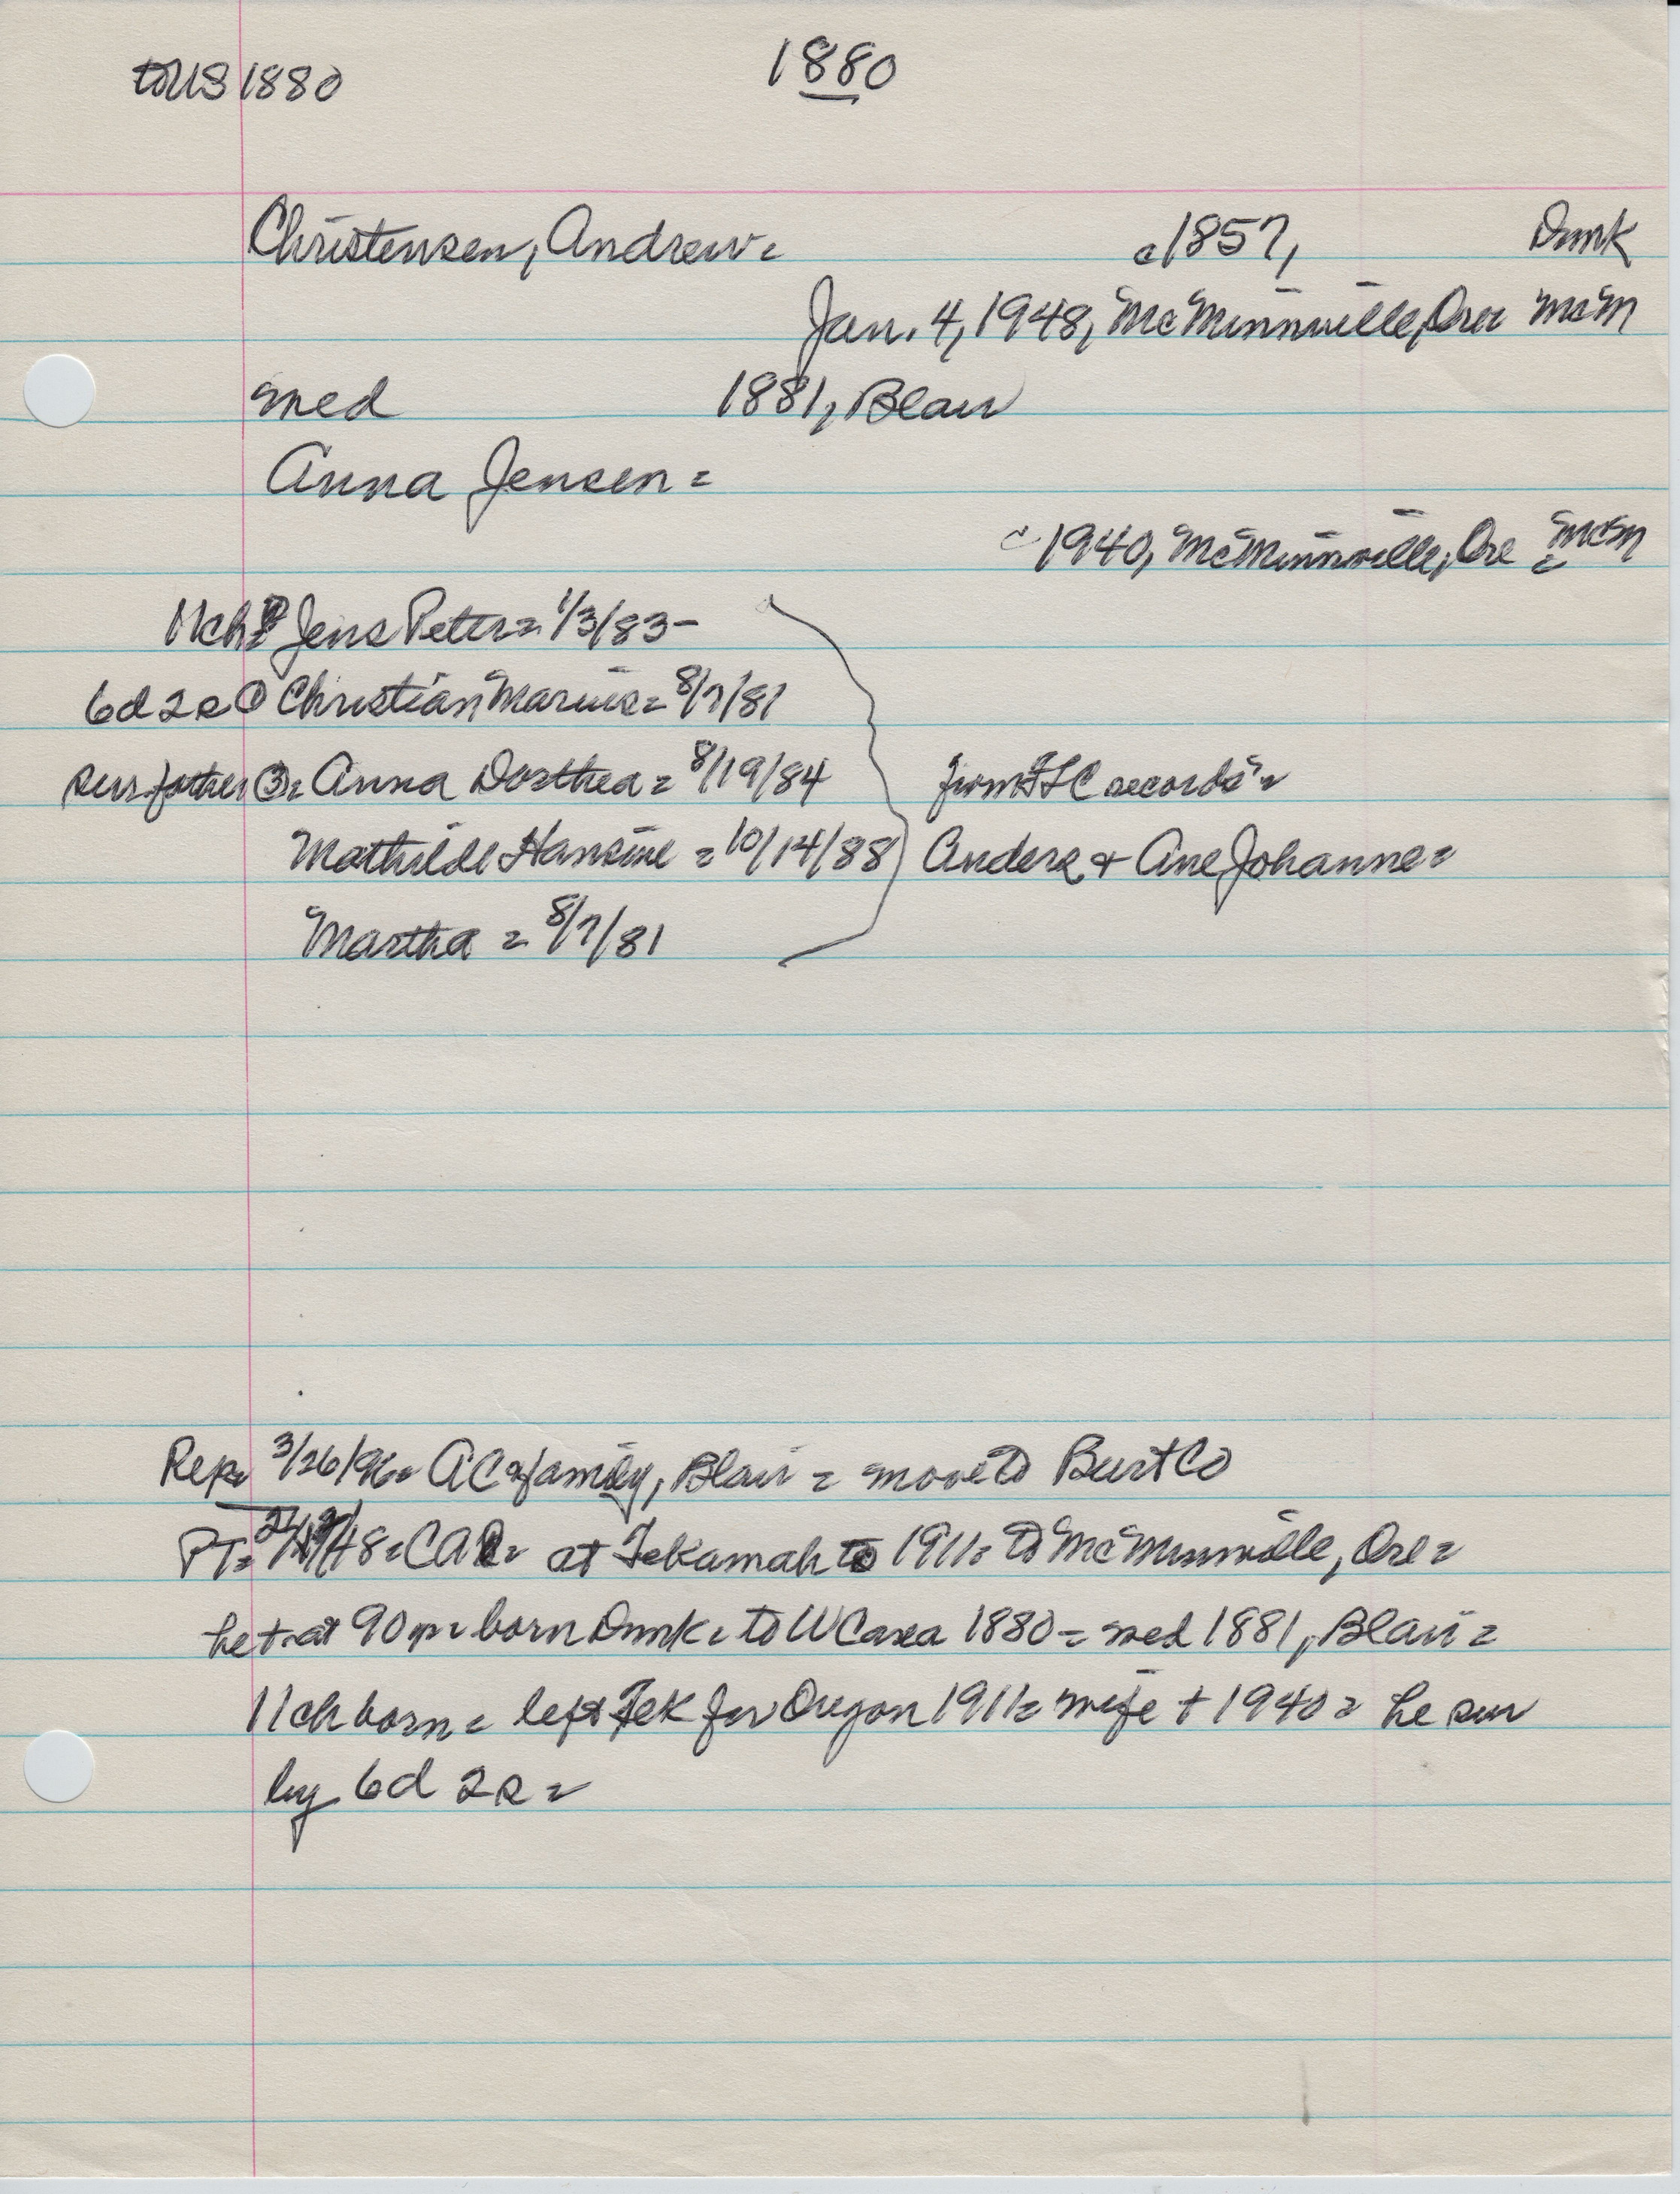 to US 1880
1880
Christensen, Andrew = c1857, Dnmk
Jan. 4, 1948, McMinnville, Ore = McM
med 1881, Blair
Anna Jensen =
c 1940, McMinnville, Ore = McM
11ch Jens Peter = 1/3/83 -
6d 2s ① Christian Marius = 8/7/81
sur father ③ = Anna Dorthea = 8/19/84 from FLC records =
Mathilde Hansine = 10/14/88 Anders + Ane Johanne =
Martha = 8/7/81
Rep = 3/26/96 = AC + family, Blair = move to Burt Co
PT = /48 = CAR = at Tekamah to 1911 = to McMinnville, Ore =
he + at 90 yr = born Dnmk = to WC area 1880 = med 1881, Blair =
11 ch born = left Tek for Oregon 1911 = wife + 1940 = he sur
by 6d 2s =